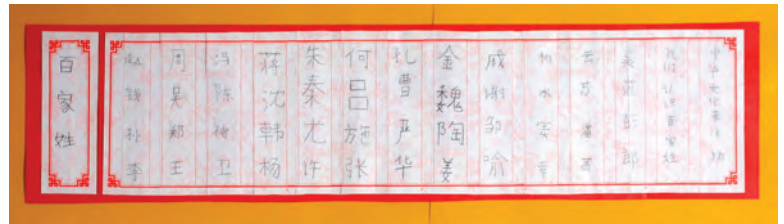 百家姓
赵钱孙李
周吴郑王
冯陈褚卫
蒋沈韩杨
朱秦尤许
何吕施张
孔曹严华
金魏陶姜
戚谢邹喻
柏水窦章
云苏潘葛
奚范彭郎
我们认识百家姓
中华文化